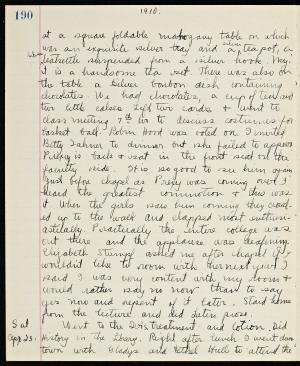 190
1910.
at a square foldable mahogany table on which
was an exquisite silver tray and a silver teapot, a
teakettle suspended from a silver hook. My,
it is a handsome tea set. There was also on
the table a silver bonbon dish containing
chocolates. We had chocolate, a cup of tea and
two little cakes. Left two cards & went to
class meeting 7th hr to discuss costumes for
basket ball. Robin Hood was voted on. I invited
Betty Sahner to dinner but she failed to appear.
Prexy is back & sat in the first seat on the
faculty side. It is so good to see him again.
Just before chapel as Prexy was coming over I
heard the greatest commotion & this was
it. When the girls saw him coming they crowd-
ed up to the walk and clapped most enthusi-
astically. Practically the entire college was
out there and the applause was deafening.
Elizabeth Stumpf asked me after chapel if I
wouldn't like to room with her next year. I
said I was very content with my room &
would rather say no now than to say
yes now and repent of it later. Staid home
from the lecture and did Latin prose.
Sat
Apr. 23.
Went to the Dr's, treatment and lotion. Did
History in the Library. Right after lunch I went down
town with Gladys and Ethel Hull to attend the